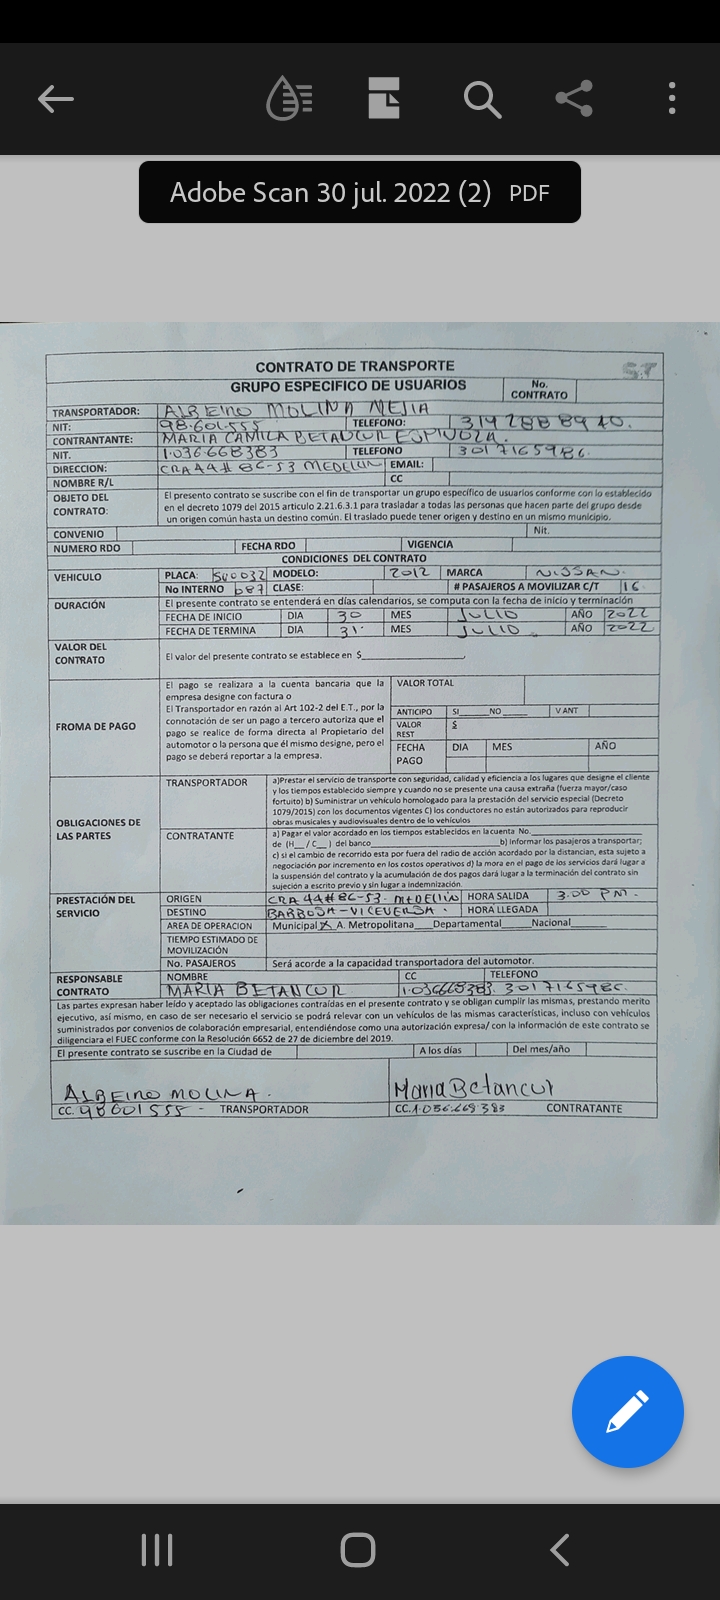 Adobe Scan 30 jul. 2022 (2) PDF
CONTRATO DE TRANSPORTE
GRUPO ESPECIFICO DE USUARIOS No. CONTRATO
TRANSPORTADOR: ALBEIRO MOLINA MEJIA
NIT: 98.601.555 TELEFONO: 319 288 8940.
CONTRANTANTE: MARIA CAMILA BETANCUR ESPINOZA.
NIT. 1.036.668383 TELEFONO 3017165986.
DIRECCION: CRA 44 # 86-53 MEDELLIN EMAIL:
NOMBRE R/L CC
OBJETO DEL CONTRATO: El presente contrato se suscribe con el fin de transportar un grupo específico de usuarios conforme con lo establecido
en el decreto 1079 del 2015 articulo 2.21.6.3.1 para trasladar a todas las personas que hacen parte del grupo desde
un origen común hasta un destino común. El traslado puede tener origen y destino en un mismo municipio.
CONVENIO Nit.
NUMERO RDO FECHA RDO VIGENCIA
CONDICIONES DEL CONTRATO
VEHICULO PLACA: MODELO: 2012 MARCA NISSAN.
No INTERNO 687 CLASE: # PASAJEROS A MOVILIZAR C/T 16.
DURACIÓN El presente contrato se entenderá en días calendarios, se computa con la fecha de inicio y terminación
FECHA DE INICIO DIA 30 MES JULIO AÑO 2022
FECHA DE TERMINA DIA 31 MES JULIO AÑO 2022
VALOR DEL CONTRATO El valor del presente contrato se establece en $
FROMA DE PAGO
El pago se realizara a la cuenta bancaria que la
empresa designe con factura o
El Transportador en razón al Art 102-2 del E.T., por la
connotación de ser un pago a tercero autoriza que el
pago se realice de forma directa al Propietario del
automotor o la persona que él mismo designe, pero el
pago se deberá reportar a la empresa.
VALOR TOTAL
ANTICIPO SI NO V ANT
VALOR REST $
FECHA PAGO DIA MES AÑO
OBLIGACIONES DE LAS PARTES
TRANSPORTADOR a)Prestar el servicio de transporte con seguridad, calidad y eficiencia a los lugares que designe el cliente
y los tiempos establecido siempre y cuando no se presente una causa extraña (fuerza mayor/caso
fortuito) b) Suministrar un vehículo homologado para la prestación del servicio especial (Decreto
1079/2015) con los documentos vigentes C) los conductores no están autorizados para reproducir
obras musicales y audiovisuales dentro de lo vehículos
CONTRATANTE a) Pagar el valor acordado en los tiempos establecidos en la cuenta No.
de (H__/C__) del banco b) Informar los pasajeros a transportar;
c) si el cambio de recorrido esta por fuera del radio de acción acordado por la distancian, esta sujeto a
negociación por incremento en los costos operativos d) la mora en el pago de los servicios dará lugar a
la suspensión del contrato y la acumulación de dos pagos dará lugar a la terminación del contrato sin
sujeción a escrito previo y sin lugar a indemnización.
PRESTACIÓN DEL SERVICIO
ORIGEN CRA 44#86-53. MEDELLIN HORA SALIDA 3:00 PM.
DESTINO BARBOSA-VICEVERSA. HORA LLEGADA
AREA DE OPERACION Municipal X A. Metropolitana Departamental Nacional
TIEMPO ESTIMADO DE MOVILIZACIÓN
No. PASAJEROS Será acorde a la capacidad transportadora del automotor.
RESPONSABLE CONTRATO NOMBRE CC TELEFONO
MARIA BETANCOR 3017165986.
Las partes expresan haber leído y aceptado las obligaciones contraídas en el presente contrato y se obligan cumplir las mismas, prestando merito
ejecutivo, así mismo, en caso de ser necesario el servicio se podrá relevar con un vehículos de las mismas características, incluso con vehículos
suministrados por convenios de colaboración empresarial, entendiéndose como una autorización expresa/ con la información de este contrato se
diligenciara el FUEC conforme con la Resolución 6652 de 27 de diciembre del 2019.
El presente contrato se suscribe en la Ciudad de A los días Del mes/año
ALBEIRO MOLINA. Maria Betancur
CC. 98601555 - TRANSPORTADOR CC. 1.036.668383 CONTRATANTE